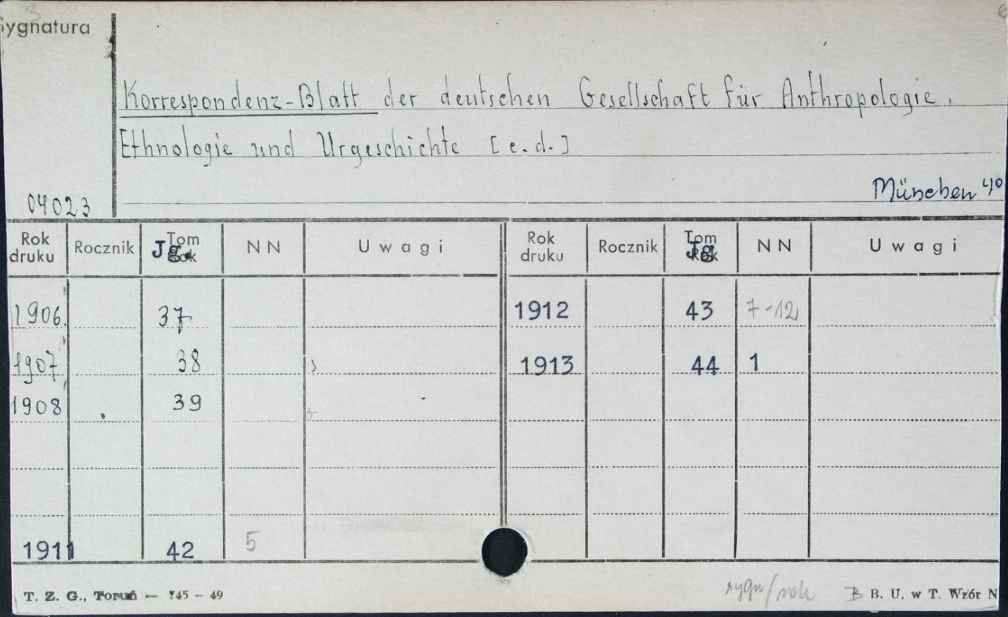 Sygnatura
Korrespondenz-Blatt der deutschen Gesellschaft für Anthropologie.
Ethnologie und Urgeschichte [e.d.]
München 4°
04023
Rok druku Rocznik Tom Rok Jg. NN Uwagi Rok druku Rocznik Tom Rok Jg NN Uwagi
1906 37 1912 43 7-12
1907 38 1913 44 1
1908 39
1911 42 5
T. Z. G., Toruń — 745 - 49 sygn/rok B B. U. w T. Wzór N